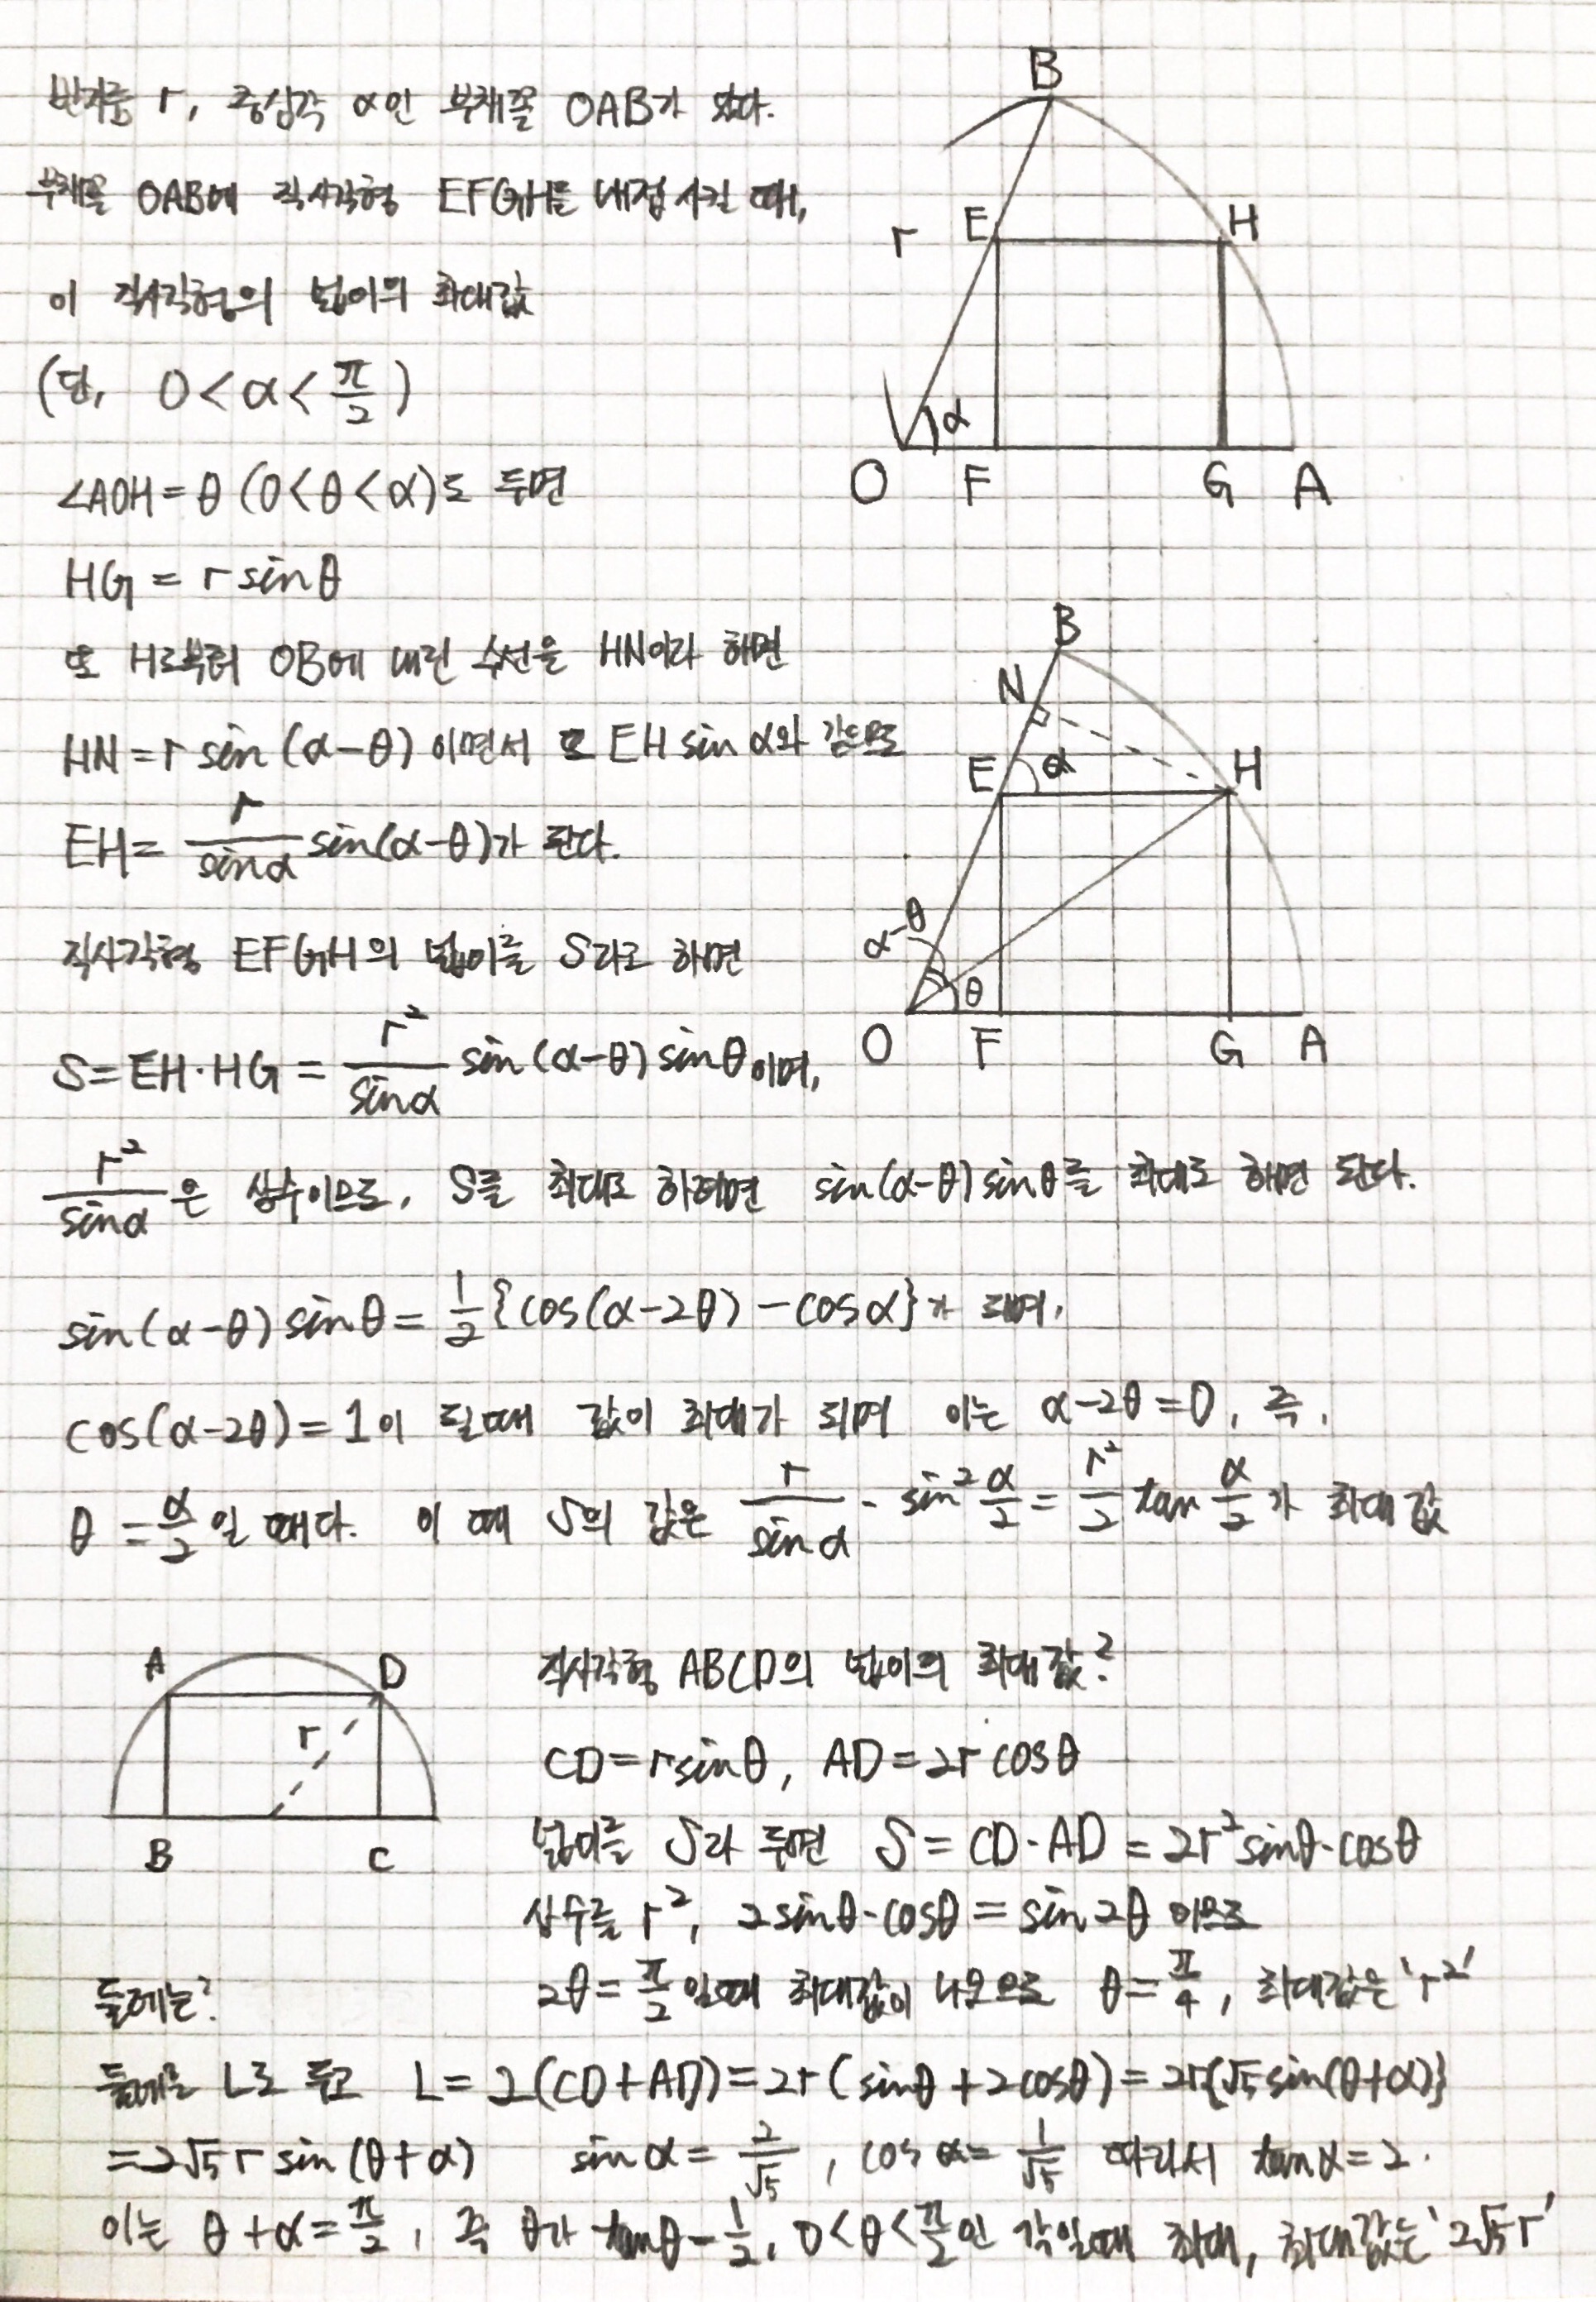 반지름 r, 중심각 α인 부채꼴 OAB가 있다.
부채꼴 OAB에 직사각형 EFGH를 내접시킬 때,
이 직사각형의 넓이의 최대값
(단, 0<α<π/2)
∠AOH=θ (0<θ<α)로 두면
HG = r sinθ
또 H로부터 OB에 내린 수선을 HN이라 하면
HN=r sin(α-θ) 이면서 또 EH sinα와 같으므로
EH= r/sinα sin(α-θ)가 된다.
직사각형 EFGH의 넓이를 S라고 하면
S=EH·HG = r²/sinα sin(α-θ) sinθ이며,
r²/sinα은 상수이므로, S를 최대로 하려면 sin(α-θ) sinθ를 최대로 하면 된다.
sin(α-θ) sinθ= 1/2{cos(α-2θ) -cosα}가 되며,
cos(α-2θ)=1이 될때 값이 최대가 되며 이는 α-2θ=0, 즉,
θ=α/2일 때다. 이 때 S의 값은 r/sinα - sin² α/2 = r²/2 tan α/2가 최대값
B
r E H
α
O F G A
B
N
E α H
α-θ
θ
O F G A
A D
r
B C
직사각형 ABCD의 넓이의 최대값?
CD=rsinθ, AD=2r cosθ
넓이를 S라 두면 S=CD·AD=2r²sinθ·cosθ
상수를 r², 2sinθ·cosθ=sin2θ 이므로
2θ=π/2일때 최대값이 나오므로 θ=π/4, 최대값은 'r²'
둘레는?
둘레를 L로 두고 L= 2(CD+AD)=2r(sinθ+2cosθ)=2r{√5 sin(θ+α)}
=2√5 r sin(θ+α) sinα= 2/√5, cosα= 1/√5 따라서 tanα=2.
이는 θ+α=π/2, 즉 θ가 tanθ-1/2, 0<θ<π/2인 각일때 최대, 최대값는 '2√5 r'